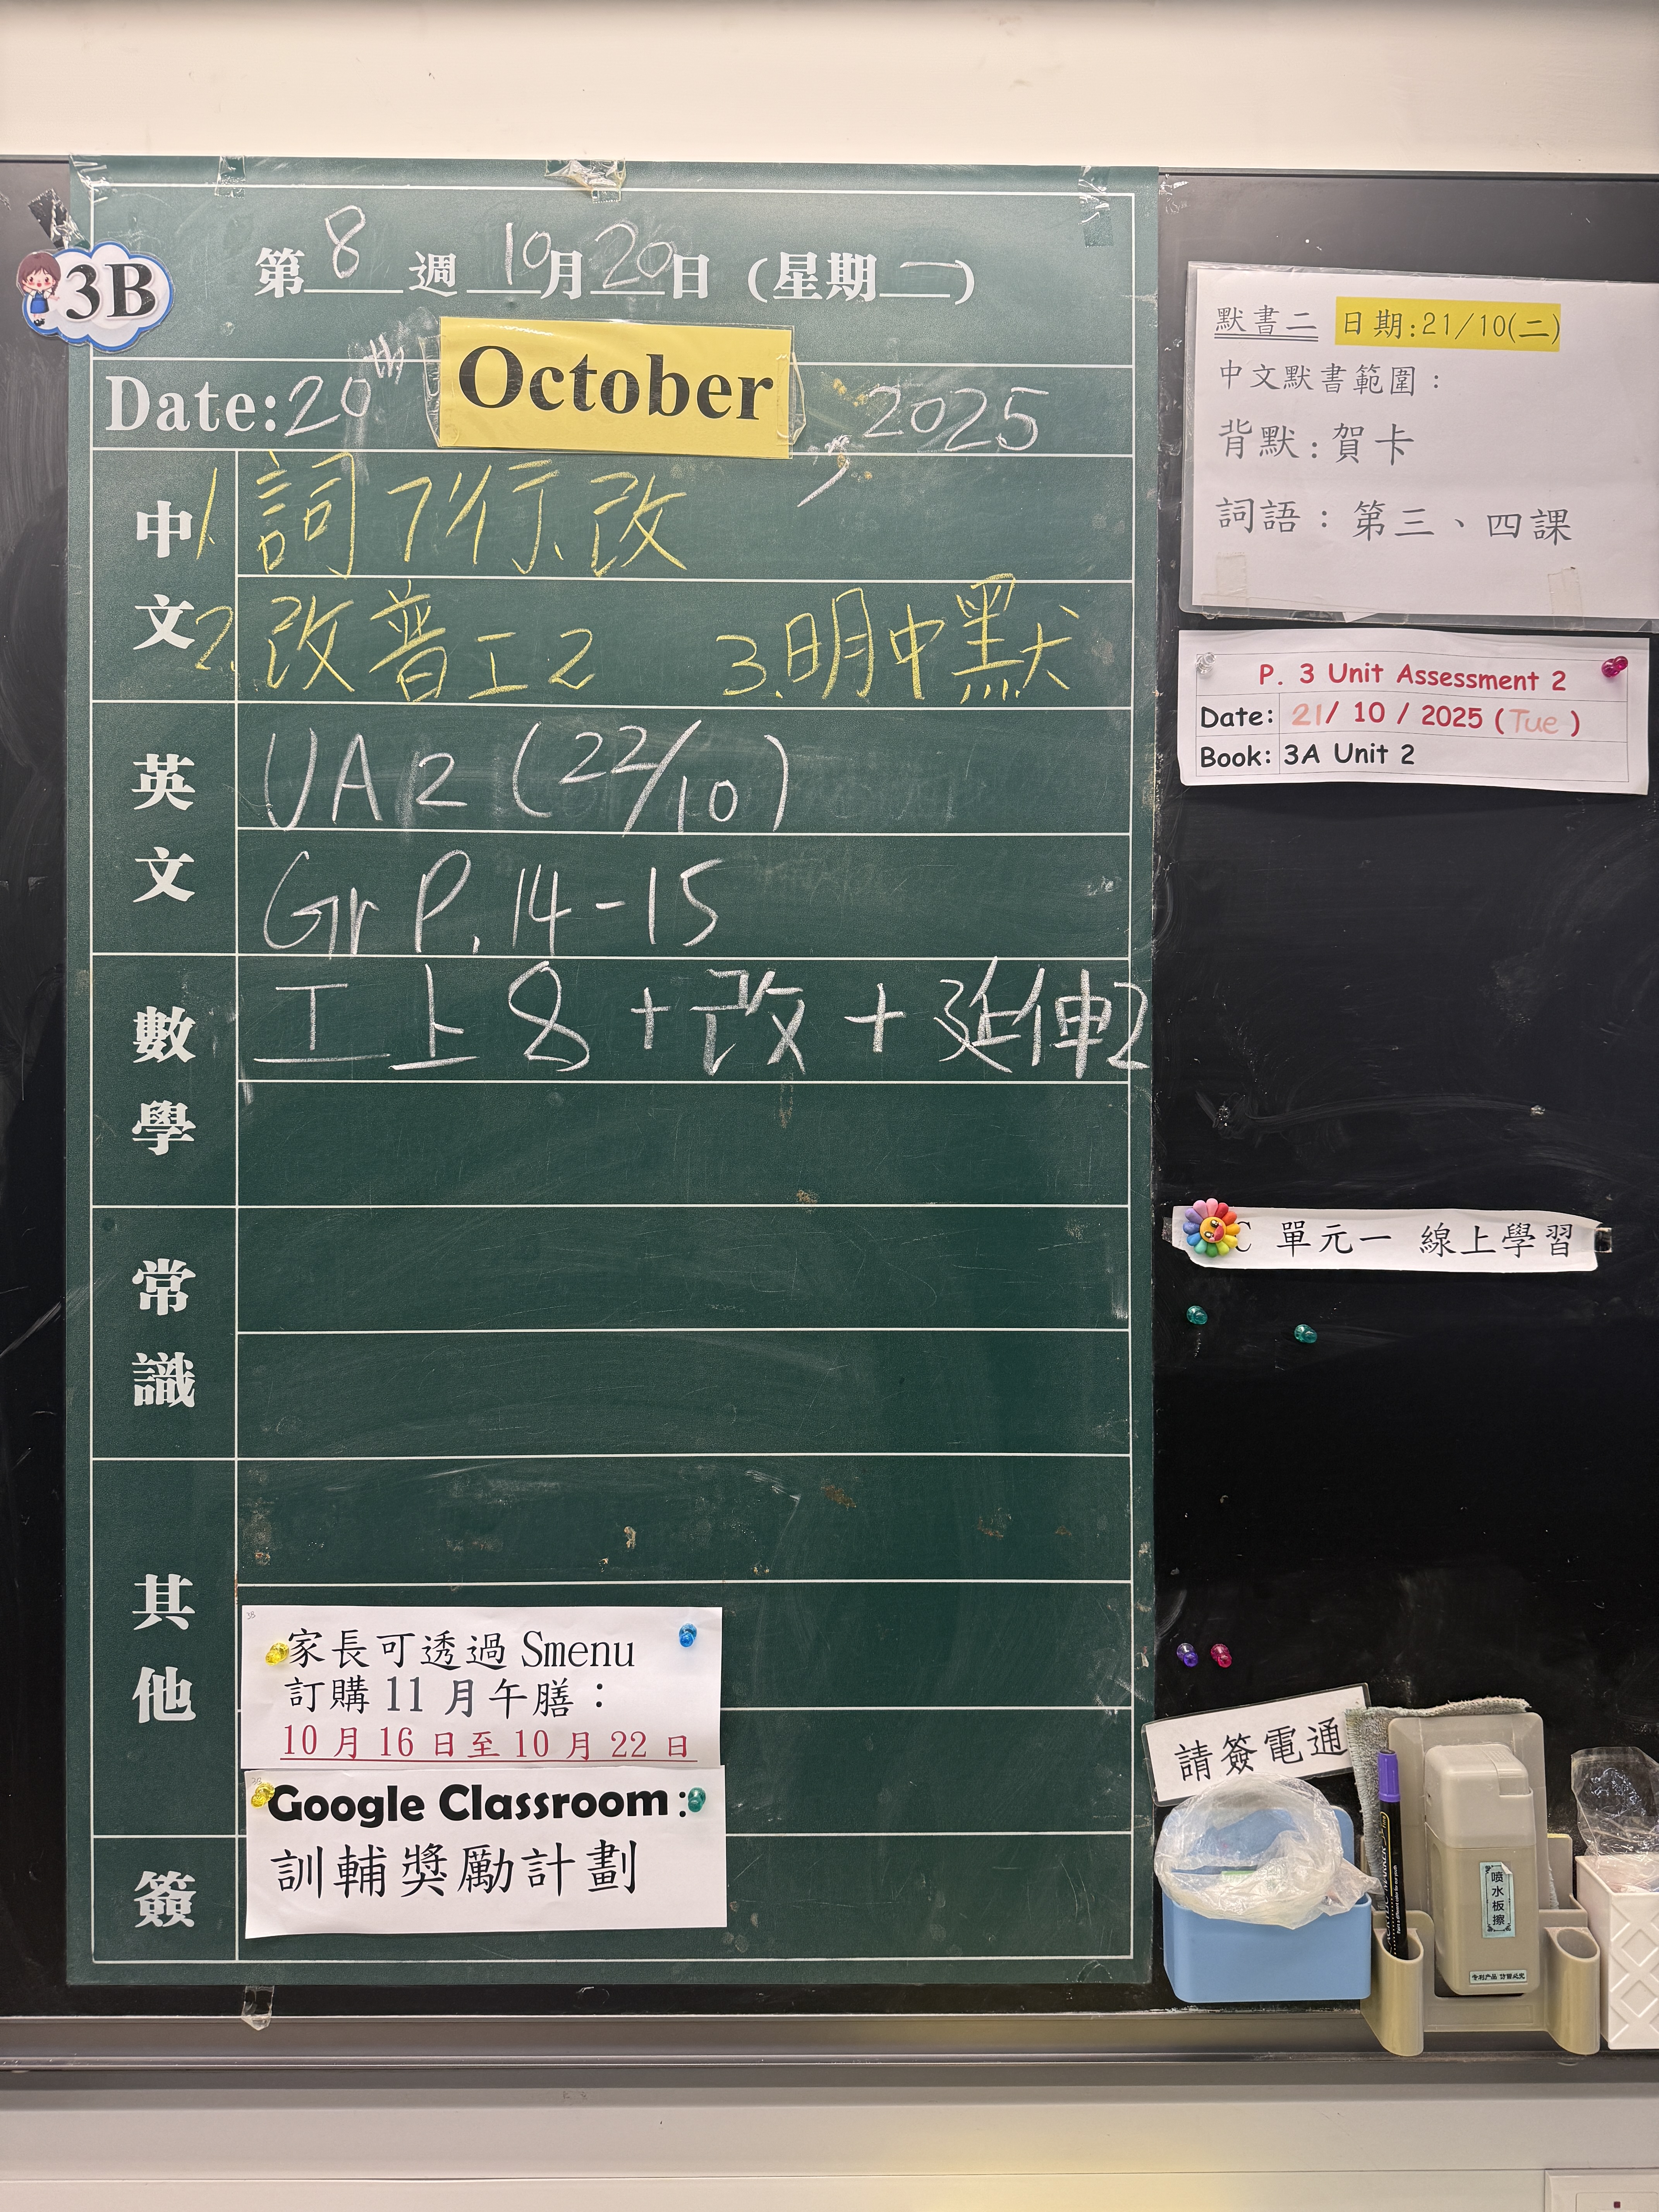 3B
第8週 10月20日（星期一）
Date: 20th October, 2025
中文
1. 詞7行、改
2. 改普工2 3. 明中默
英文
UA2 (22/10)
Gr P.14-15
數學
工上8+改+延伸2
常識
其他
家長可透過 Smenu
訂購 11 月午膳：
10 月 16 日至 10 月 22 日
Google Classroom:
訓輔獎勵計劃
簽
默書二 日期:21/10(二)
中文默書範圍：
背默：賀卡
詞語：第三、四課
P. 3 Unit Assessment 2
Date: 21/ 10 / 2025 (Tue)
Book: 3A Unit 2
單元一 線上學習
請簽電通
喷水板擦